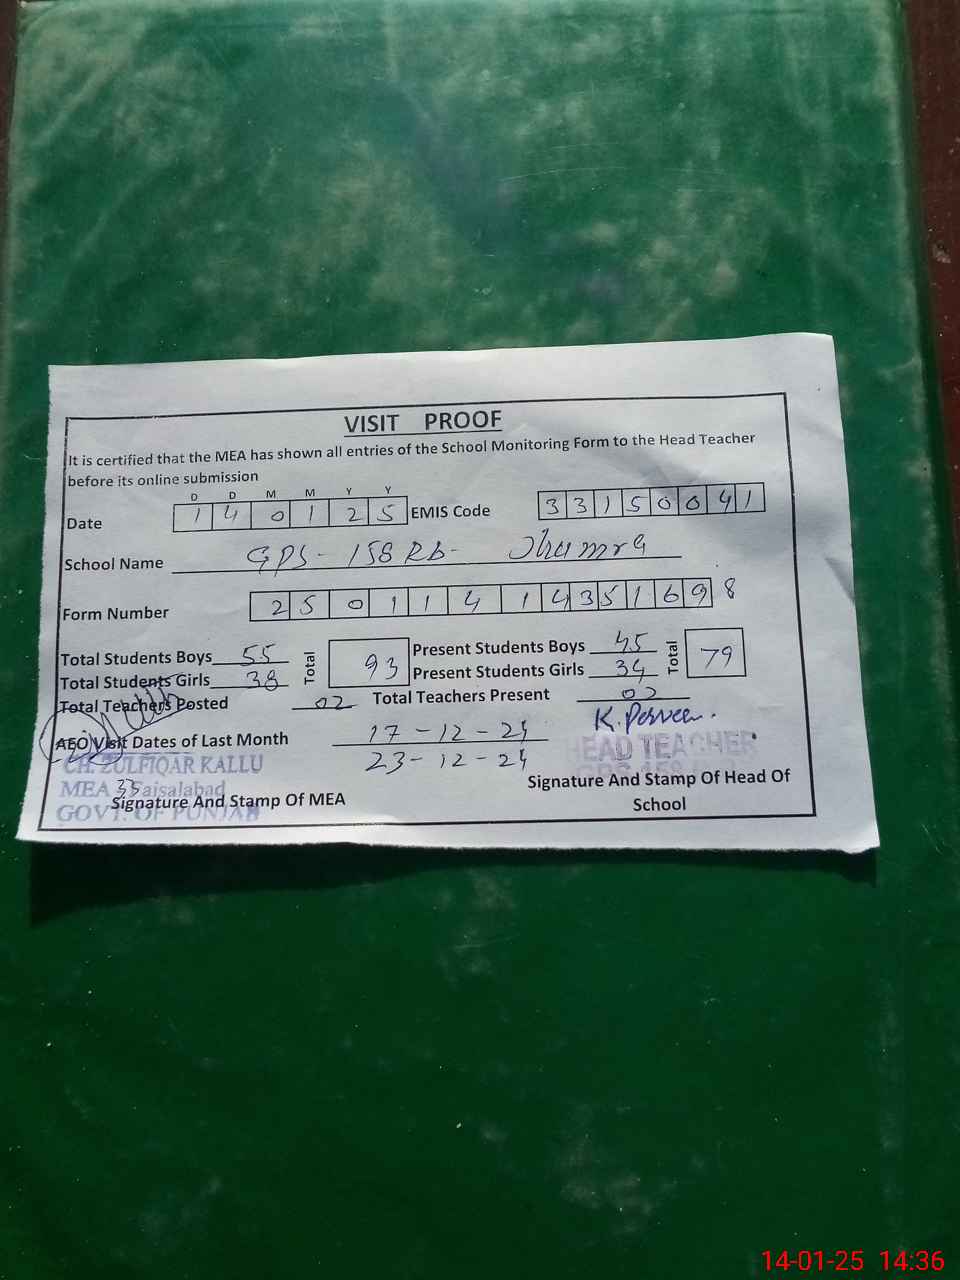 VISIT PROOF
It is certified that the MEA has shown all entries of the School Monitoring Form to the Head Teacher
before its online submission
D D M M Y Y
Date 1 4 0 1 2 5 EMIS Code 3 3 1 5 0 0 4 1
School Name GPS - 158 Rb - Jhamra
Form Number 2 5 0 1 1 4 1 4 3 5 1 6 9 8
Total Students Boys 55 Total 93 Present Students Boys 45 Total 79
Total Students Girls 38 Present Students Girls 34
Total Teachers Posted 02 Total Teachers Present 02
K. Perveen.
AEO Visit Dates of Last Month 17-12-24
23-12-24
HEAD TEACHER
CH. ZULFIQAR KALLU
MEA 35 Faisalabad
GOVT. OF PUNJAB
Signature And Stamp Of MEA
Signature And Stamp Of Head Of
School
14-01-25 14:36